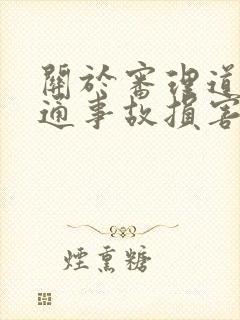 關於審理道
通事故損害
煙熏糖